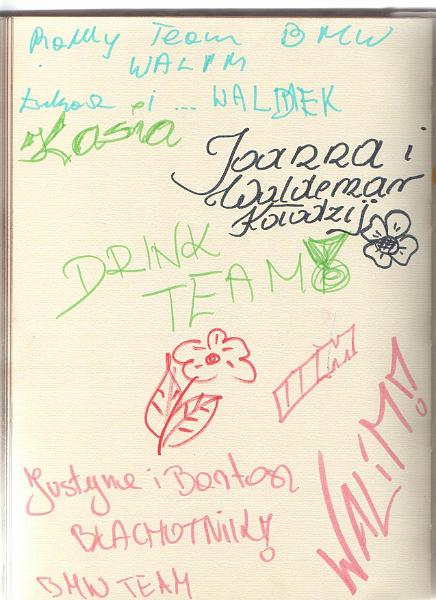 Rally Team BMW
WALIM
Łukasz i ... WALDEK
Kasia
Joanna i
Waldemar
Kołodziej
DRINK
TEAM
WALIM!
Justyna i Bartosz
BŁACHOTNIK!
BMW TEAM